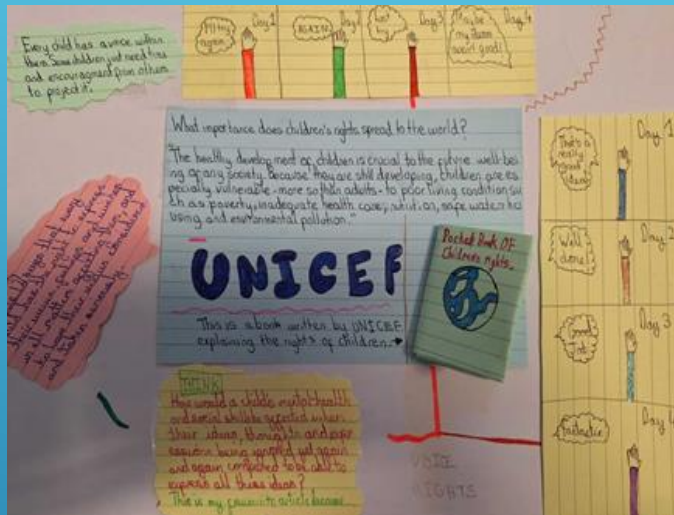 Every child has a voice within
them. Some children just need time
and encouragment from others
to project it.
I'll try
again
Day 1
AGAIN
Day 2
Last
try
Day 3
Maybe
my ideas
aren't good!
Day 4
What importance does children's rights spread to the world?
"The healthy development of children is crucial to the future well-bei
ng of any society. Because they are still developing, children are es
pecially vulnerable - more so than adults - to poor living conditions su
ch as poverty, inadequate health care, nutrition, safe water, ho
using and environmental pollution."
UNICEF
This is a book written by UNICEF
explaining the rights of children.
Pocket Book OF
Children's rights.
says that every
child has the right to express
their views, feelings and wishes
in all matters affecting them, and
to have their views considered
and taken seriously.
THINK
How would a child's mental health
and social skills be affected when
their ideas, thoughts and
being ignored yet again
and again compared to be able to
express all these ideas?
This is my favourite article because
That's a
really
good
idea!
Day 1
Well
done!
Day 2
Good
Day 3
Fantastic
Day 4
RIGHTS